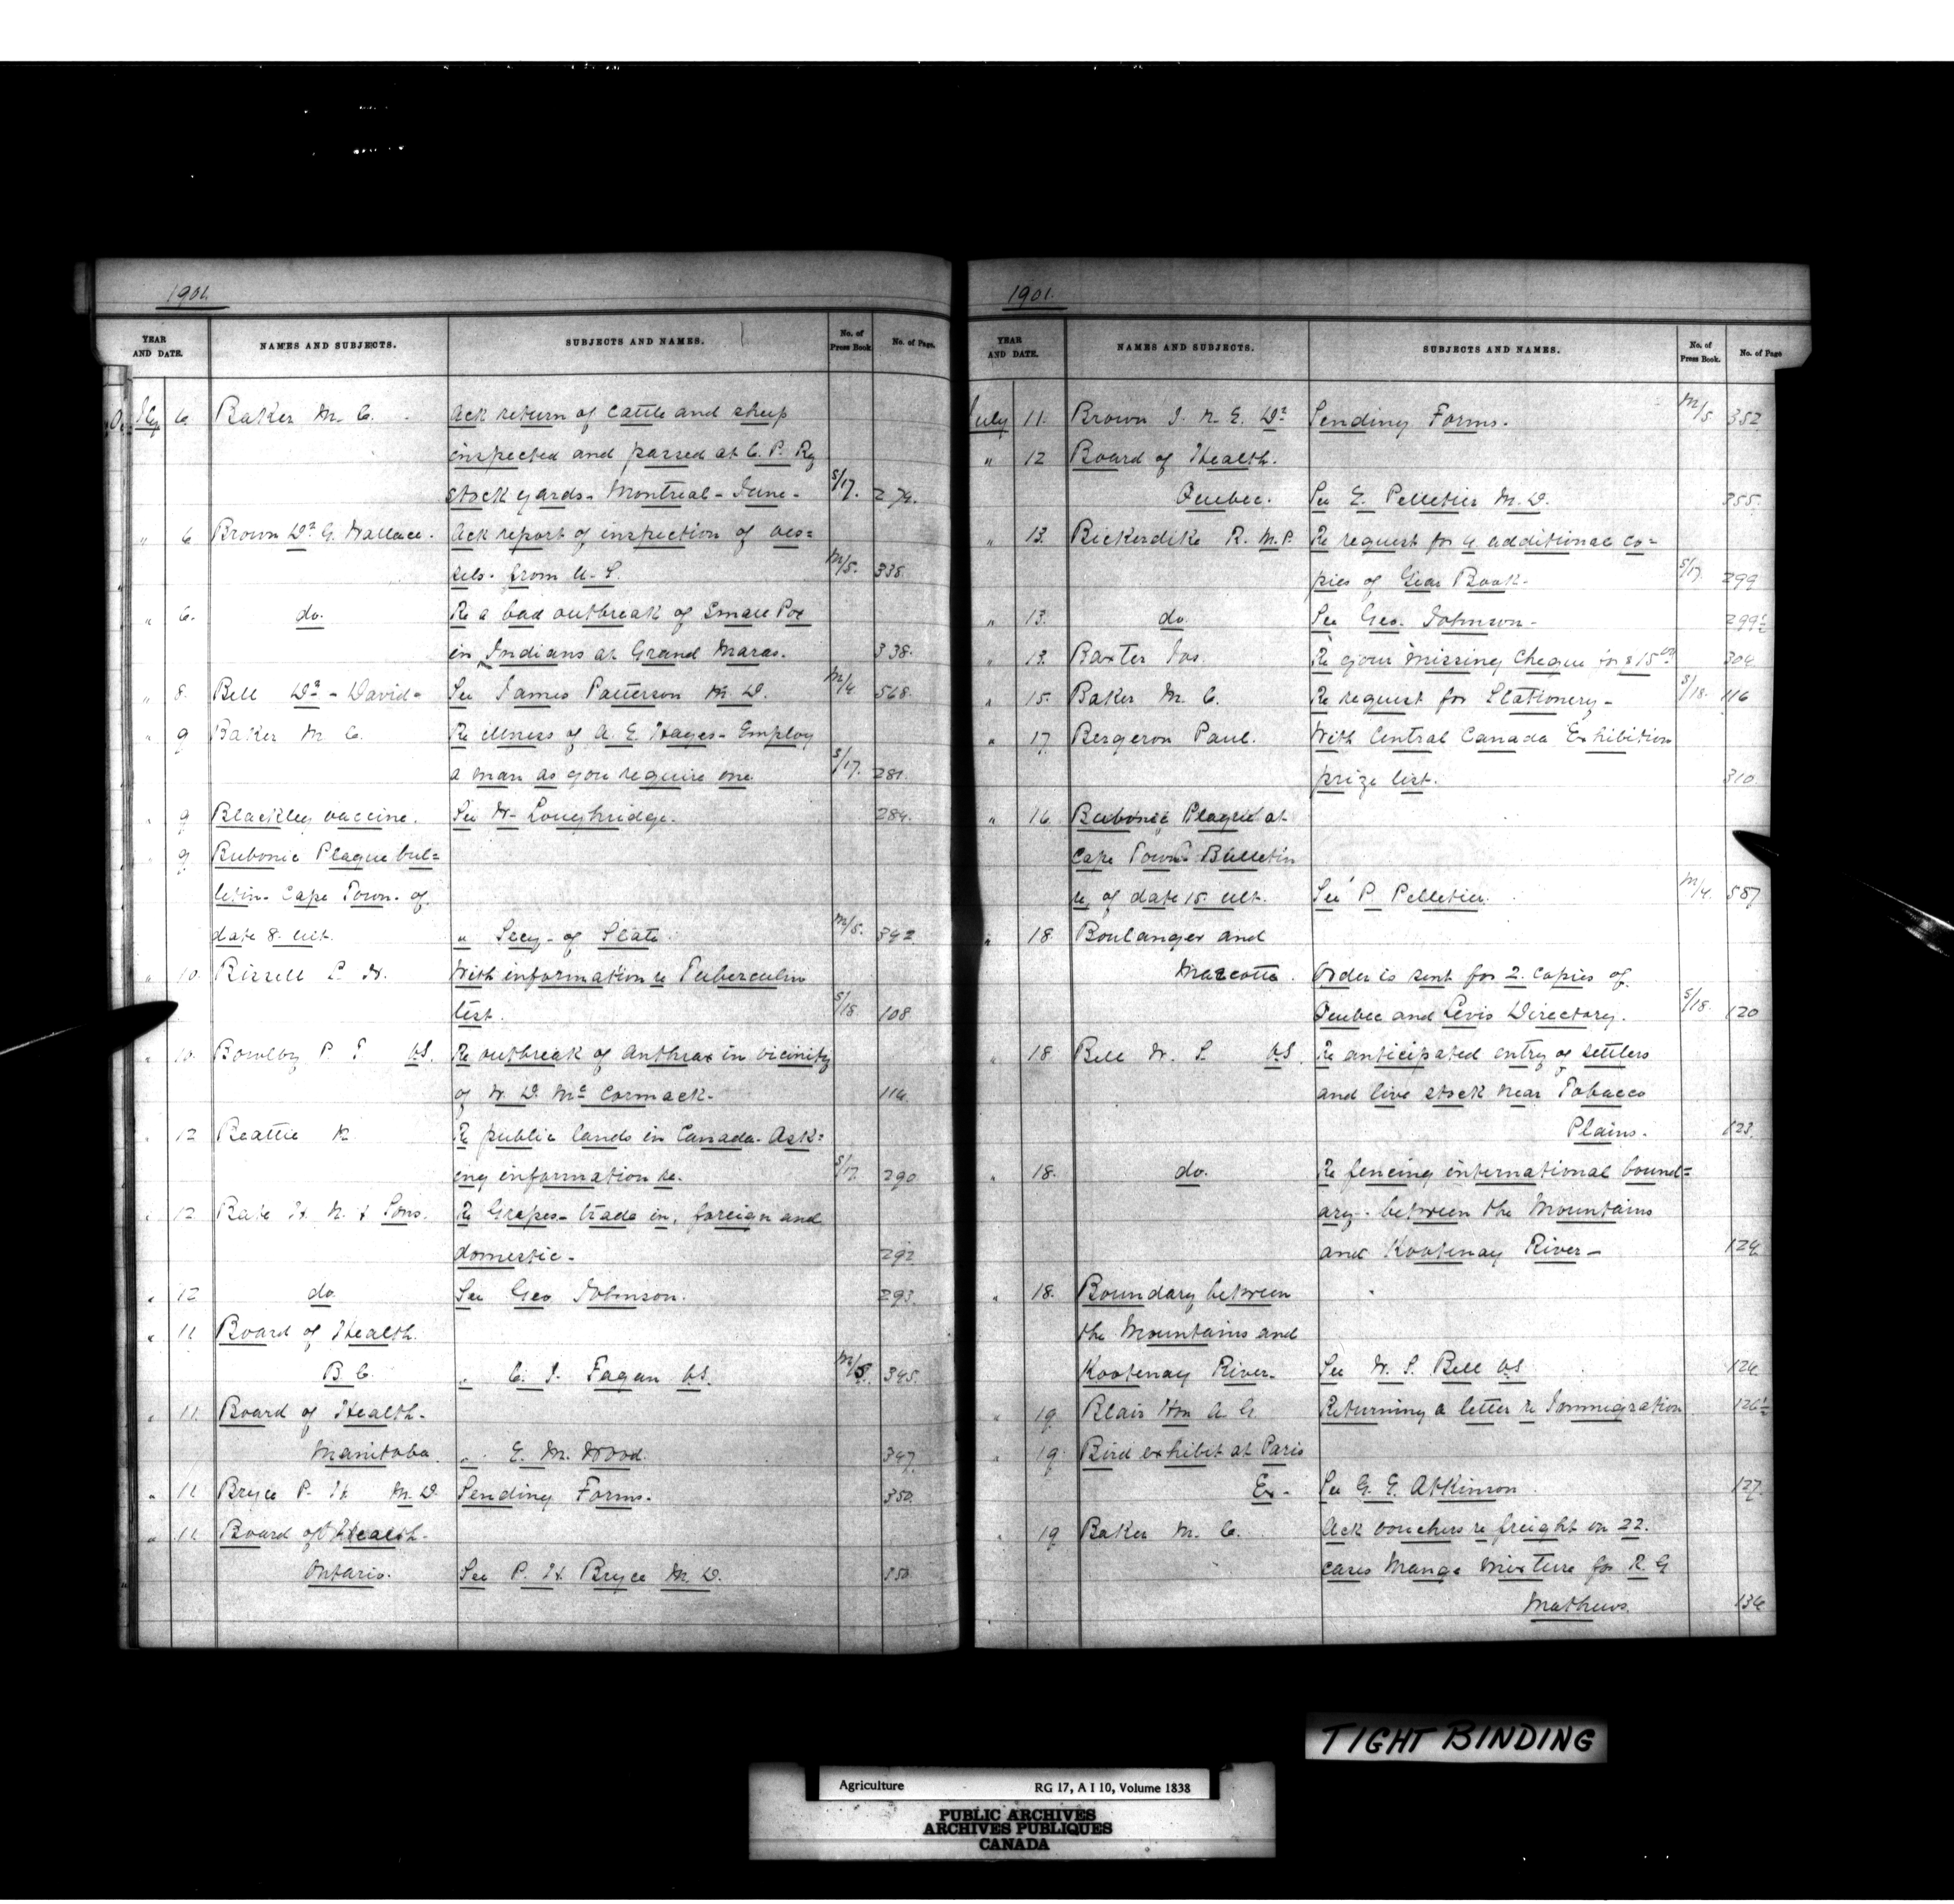 1901.
YEAR AND DATE. NAMES AND SUBJECTS. SUBJECTS AND NAMES. No. of Press Book No. of Page.
July 6. Baker M. C. Ack return of cattle and sheep
inspected and passed at C. P. Ry
stock yards - Montreal - June - S/17. 274.
" 6 Brown Dr G. Wallace. Ack report of inspection of ves=
sels. from U. S. M/5. 338.
" 6. do. Re a bad outbreak of Small Pox
in Indians at Grand Maras. 338.
" 8. Bell Dr - David - See James Patterson M. D. M/4 568.
" 9 Baker M. C. Re illness of A. E. Hayes - Employ
a man as you require one. S/17. 281.
" 9 Blackley vaccine. See W. Loughridge. 284.
" 9 Bubonic Plague bul=
letin - Cape Town - of
date 8. ult. " Secy - of State. M/5. 342
" 10. Bissell L. W. With information re Tuberculin
test. S/18 108
" 10. Bowlby P. T. V.S. Re outbreak of anthrax in vicinity
of W. D. McCormack. 114
" 12 Beattie R. Re public lands in Canada - Ask=
ing information re. S/17. 290
" 12 Bate H. N. & Sons. Re Grapes - trade in, foreign and
domestic - 292
" 12 do. See Geo Johnson. 293.
" 11 Board of Health.
B C. " C. J. Fagan V.S. M/5. 345.
" 11. Board of Health -
Manitoba. " E. M. Wood. 347.
" 11 Bryce P. H. M. D. Sending Forms. 350.
" 11 Board of Health -
Ontario. See P. H. Bryce M. D. 350
1901.
YEAR AND DATE. NAMES AND SUBJECTS. SUBJECTS AND NAMES. No. of Press Book. No. of Page
July 11. Brown J. N. E. Dr Sending Forms. M/5 352
" 12 Board of Health.
Quebec. See E. Pelletier M. D. 355.
" 13. Bickerdike R. M. P. Re request for 4 additional co=
pies of Year Book - S/17. 299
" 13. do. See Geo. Johnson - 299½
" 13. Baxter Jas. Re your missing cheque for $15.00 304
" 15. Baker M. C. Re request for Stationery - S/18. 116
" 17 Bergeron Paul. With Central Canada Exhibition
prize list. 310
" 16 Bubonic Plague at
Cape Town - Bulletin
re, of date 15. ult. See P. Pelletier. M/4. 587
" 18 Boulanger and
Marcotte. Order is sent for 2. copies of
Quebec and Levis Directory. S/18. 120
" 18 Bell W. S. V.S. Re anticipated entry of settlers
and live stock near Tobacco
Plains. 123.
" 18. do. Re fencing international bound=
ary - between the Mountains
and Kootenay River - 124
" 18. Boundary between
the Mountains and
Kootenay River. See W. S. Bell V.S 124
" 19. Blair Hon A. G. Returning a letter re Immigration 126½
" 19 Bird exhibit at Paris
Ex - See G. E. Atkinson. 127.
" 19 Baker M. C. Ack vouchers re freight on 22.
cases Mange mixture for R. G
Mathews. 134
TIGHT BINDING
Agriculture RG 17, A I 10, Volume 1838
PUBLIC ARCHIVES
ARCHIVES PUBLIQUES
CANADA